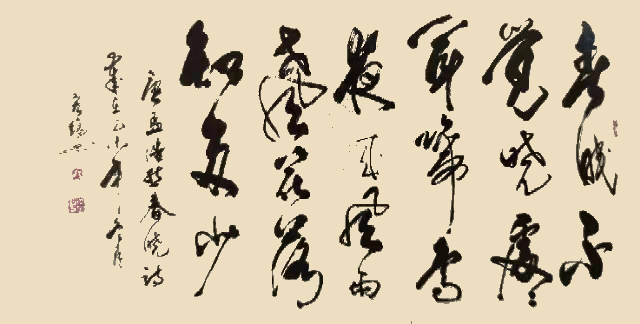 春眠不
覺曉處々
聞啼鳥
夜来風雨
聲花落
知多少
唐孟浩然春曉詩
年冬月